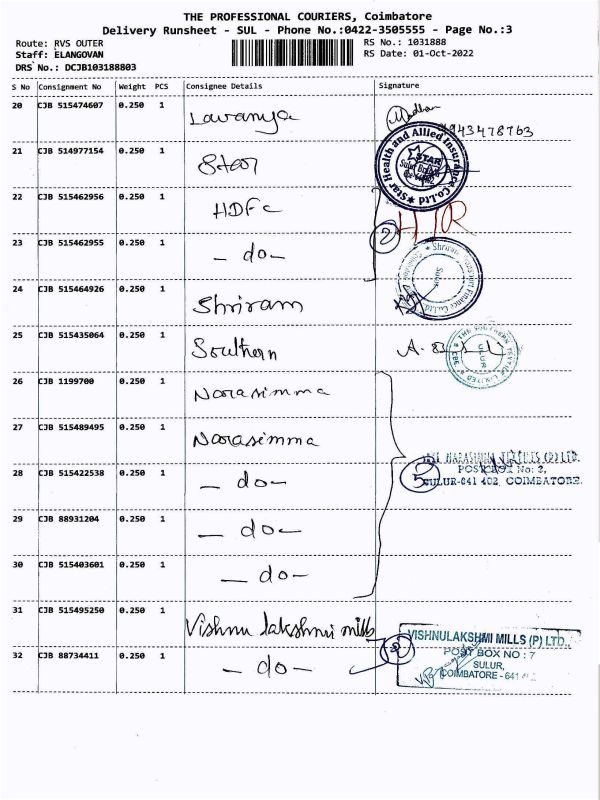 THE PROFESSIONAL COURIERS, Coimbatore
Delivery Runsheet - SUL - Phone No.:0422-3505555 - Page No.:3
Route: RVS OUTER
Staff: ELANGOVAN
DRS No.: DCJB103188803
RS No.: 1031888
RS Date: 01-Oct-2022
S No Consignment No Weight PCS Consignee Details Signature
20 CJB 515474607 0.250 1 Lavanya Madhan
9943478763
21 CJB 514977154 0.250 1 Star
Star Health and Allied Insurance Co.Ltd
STAR
22 CJB 515462956 0.250 1 HDFC
23 CJB 515462955 0.250 1 - do - 2
24 CJB 515464926 0.250 1 Shriram
Shriram Transport Finance Co.Ltd
Sulur
25 CJB 515435064 0.250 1 Southern
THE SOUTHERN TEXTILE LIMITED
CBE
SULUR
26 CJB 1199700 0.250 1 Narasimma
27 CJB 515489495 0.250 1 Narasimma
NARASIMHA TEXTILES (P) LTD.
POST BOX No: 2,
SULUR-641 402, COIMBATORE.
28 CJB 515422538 0.250 1 - do - 5
29 CJB 88931204 0.250 1 - do -
30 CJB 515403601 0.250 1 - do -
31 CJB 515495250 0.250 1 Vishnu lakshmi mills
VISHNULAKSHMI MILLS (P) LTD.,
POST BOX NO : 7
SULUR,
COIMBATORE - 641
32 CJB 88734411 0.250 1 - do - 2